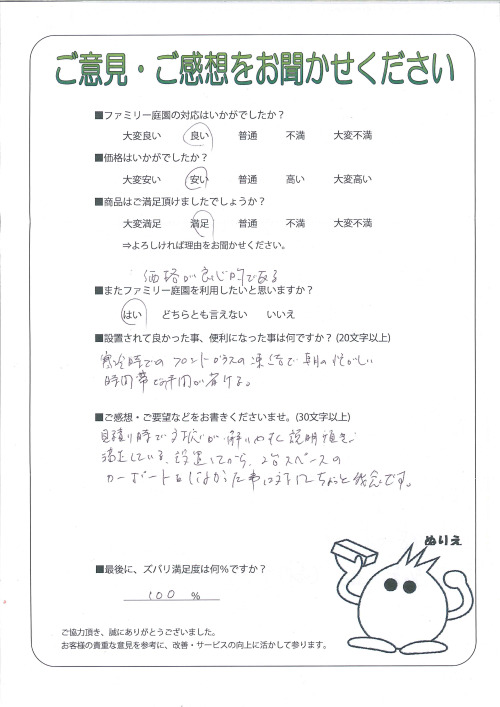 ご意見・ご感想をお聞かせください
■ファミリー庭園の対応はいかがでしたか？
大変良い 良い 普通 不満 大変不満
■価格はいかがでしたか？
大変安い 安い 普通 高い 大変高い
■商品はご満足頂けましたでしょうか？
大変満足 満足 普通 不満 大変不満
⇒よろしければ理由をお聞かせください。
価格が良心的である
■またファミリー庭園を利用したいと思いますか？
はい どちらとも言えない いいえ
■設置されて良かった事、便利になった事は何ですか？(20文字以上)
寒冷時でのフロントガラスの凍結で朝の忙がしい
時間帯に手間が省ける。
■ご感想・ご要望などをお書きくださいませ。(30文字以上)
見積り時で対応が解りやすく説明頂き
満足している、設置してから、2台スペースの
カーポートにしなかった事はちょっと残念です。
ぬりえ
■最後に、ズバリ満足度は何％ですか？
100 %
ご協力頂き、誠にありがとうございました。
お客様の貴重な意見を参考に、改善・サービスの向上に活かして参ります。